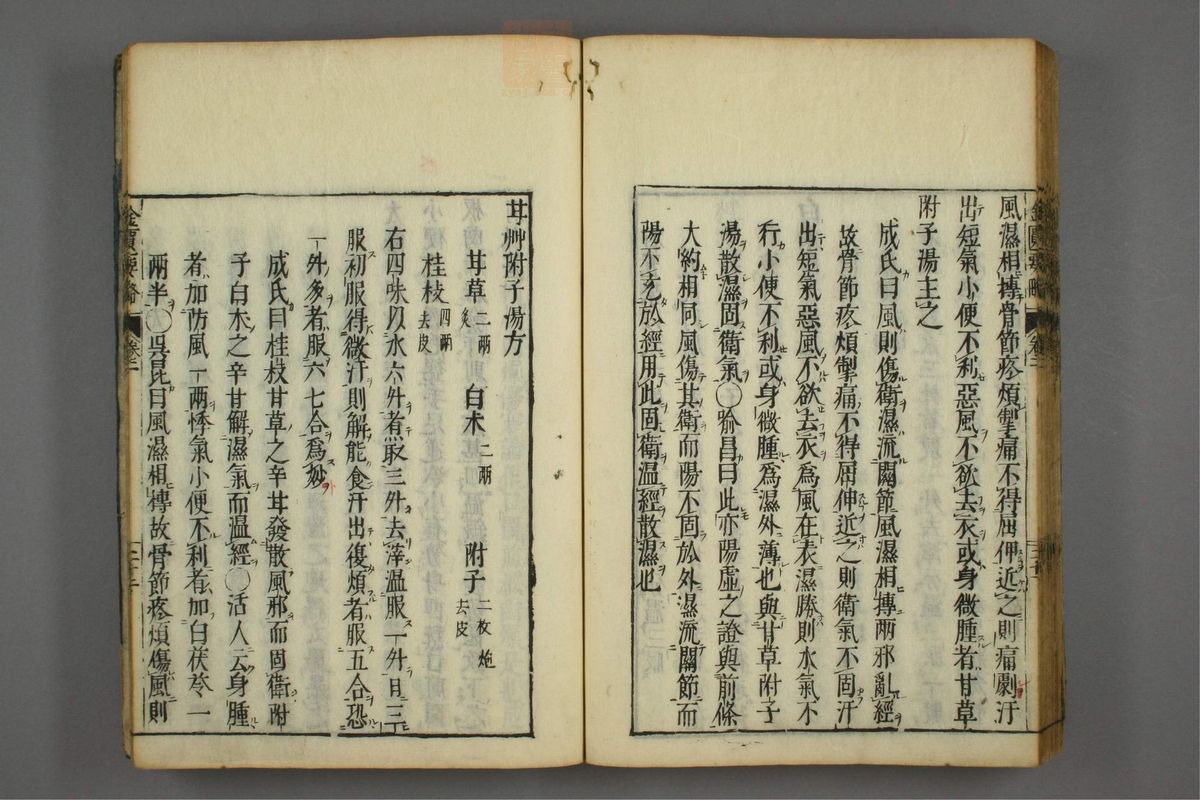 風濕相摶骨節疼煩掣痛不得屈伸近之則痛劇汗
出短氣小便不利惡風不欲去衣或身微腫者甘草
附子湯主之
成氏曰風則傷衛濕流關節風濕相摶兩邪亂經
故骨節疼煩掣痛不得屈伸近之則衛氣不固汗
出短氣惡風不欲去衣爲風在表濕勝則水氣不
行小便不利或身微腫爲濕外薄也與甘草附子
湯散濕固衛氣〇喻昌曰此亦陽虛之證與前條
大約相同風傷其衛而陽不固於外濕流關節而
陽不充於經用此固衛温經散濕也
甘艸附子湯方
甘草二兩炙 白朮二兩 附子二枚炮去皮
桂枝四兩去皮
右四味以水六升煮取三升去滓温服一升日三
服初服得微汗則解能食汗出復煩者服五合恐
一升多者服六七合爲妙
成氏曰桂枝甘草之辛甘發散風邪而固衛附
子白朮之辛甘解濕氣而温經〇活人云身腫
者加防風一兩悸氣小便不利者加白茯苓一
兩半〇吳昆曰風濕相摶故骨節疼煩傷風則
金匱要略 卷二
金匱要略 卷二